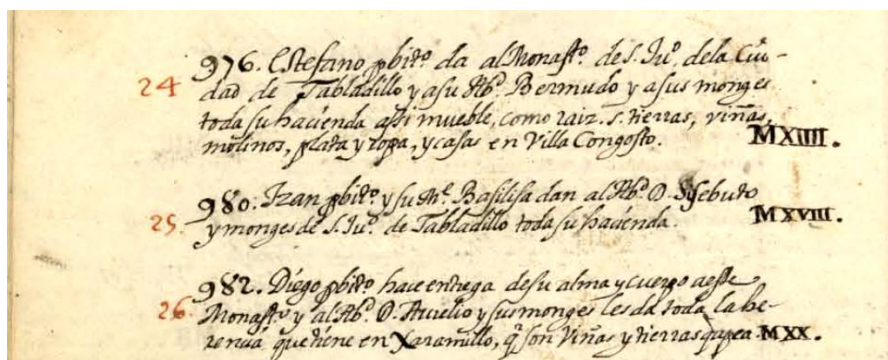 24 976. Estefano pbitº da al Monastº. de S. Juº. de la Ciu-
dad de Tabladillo y a su Abᵈ. Bermudo y a sus monges
toda su hacienda assi mueble, como raiz. s. tierras, viñas,
molinos, plata y ropa, y casas en Villa Congosto. MXIIII.
25 980. Izan pbitº. y su Mᵉ. Basilisa dan al Abᵈ. D. Sysebuto
y monges de S. Juº. de Tabladillo toda su hacienda. MXVIII.
26 982. Diego pbitº hace entrega de su alma y cuerpo a este
Monastº y al Abᵈ. D. Aurelio y sus monges les da toda la he-
rencia que tiene en Xaramillo, q̃ son viñas y tierras MXX.